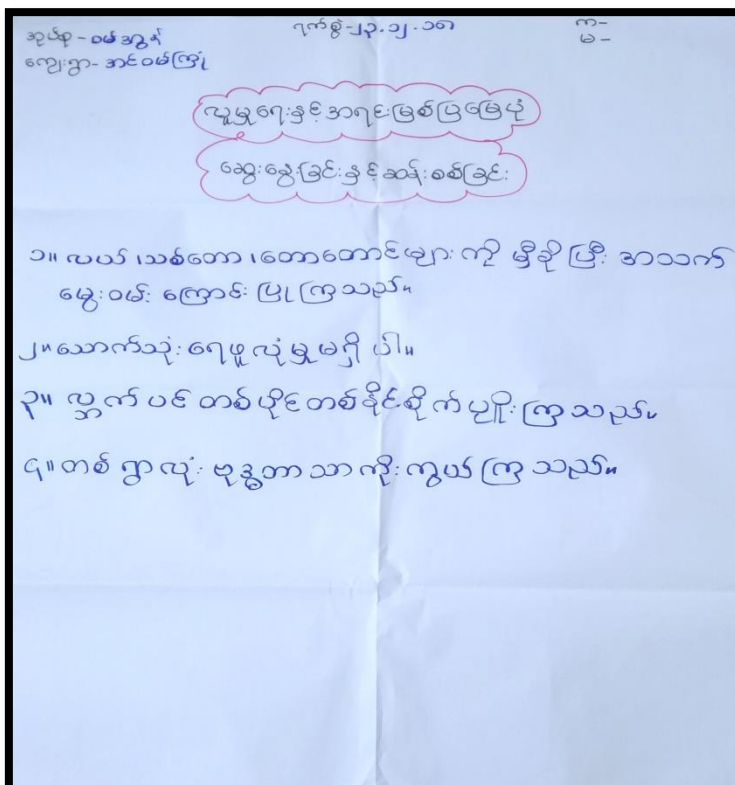 အုပ်စု - ဝမ်အွန် ရက်စွဲ - ၂၃.၁၂.၁၈ က-
ကျေးရွာ - အင်ဝမ်ကြုံ မ-
လူမှုရေးနှင့်အရင်းမြစ်ပြမြေပုံ
ဆွေးနွေးခြင်းနှင့်ဆန်းစစ်ခြင်း
၁။ လယ်၊သစ်တော၊တောတောင်များကို မှီခိုပြီး အသက်
မွေးဝမ်းကြောင်းပြုကြသည်။
၂။ သောက်သုံးရေဖူလုံမှုမရှိပါ။
၃။ လ္ဘက်ပင်တစ်ပိုင်တစ်နိုင်စိုက်ပျိုးကြသည်။
၄။ တစ်ရွာလုံးဗုဒ္ဓဘာသာကိုးကွယ်ကြသည်။